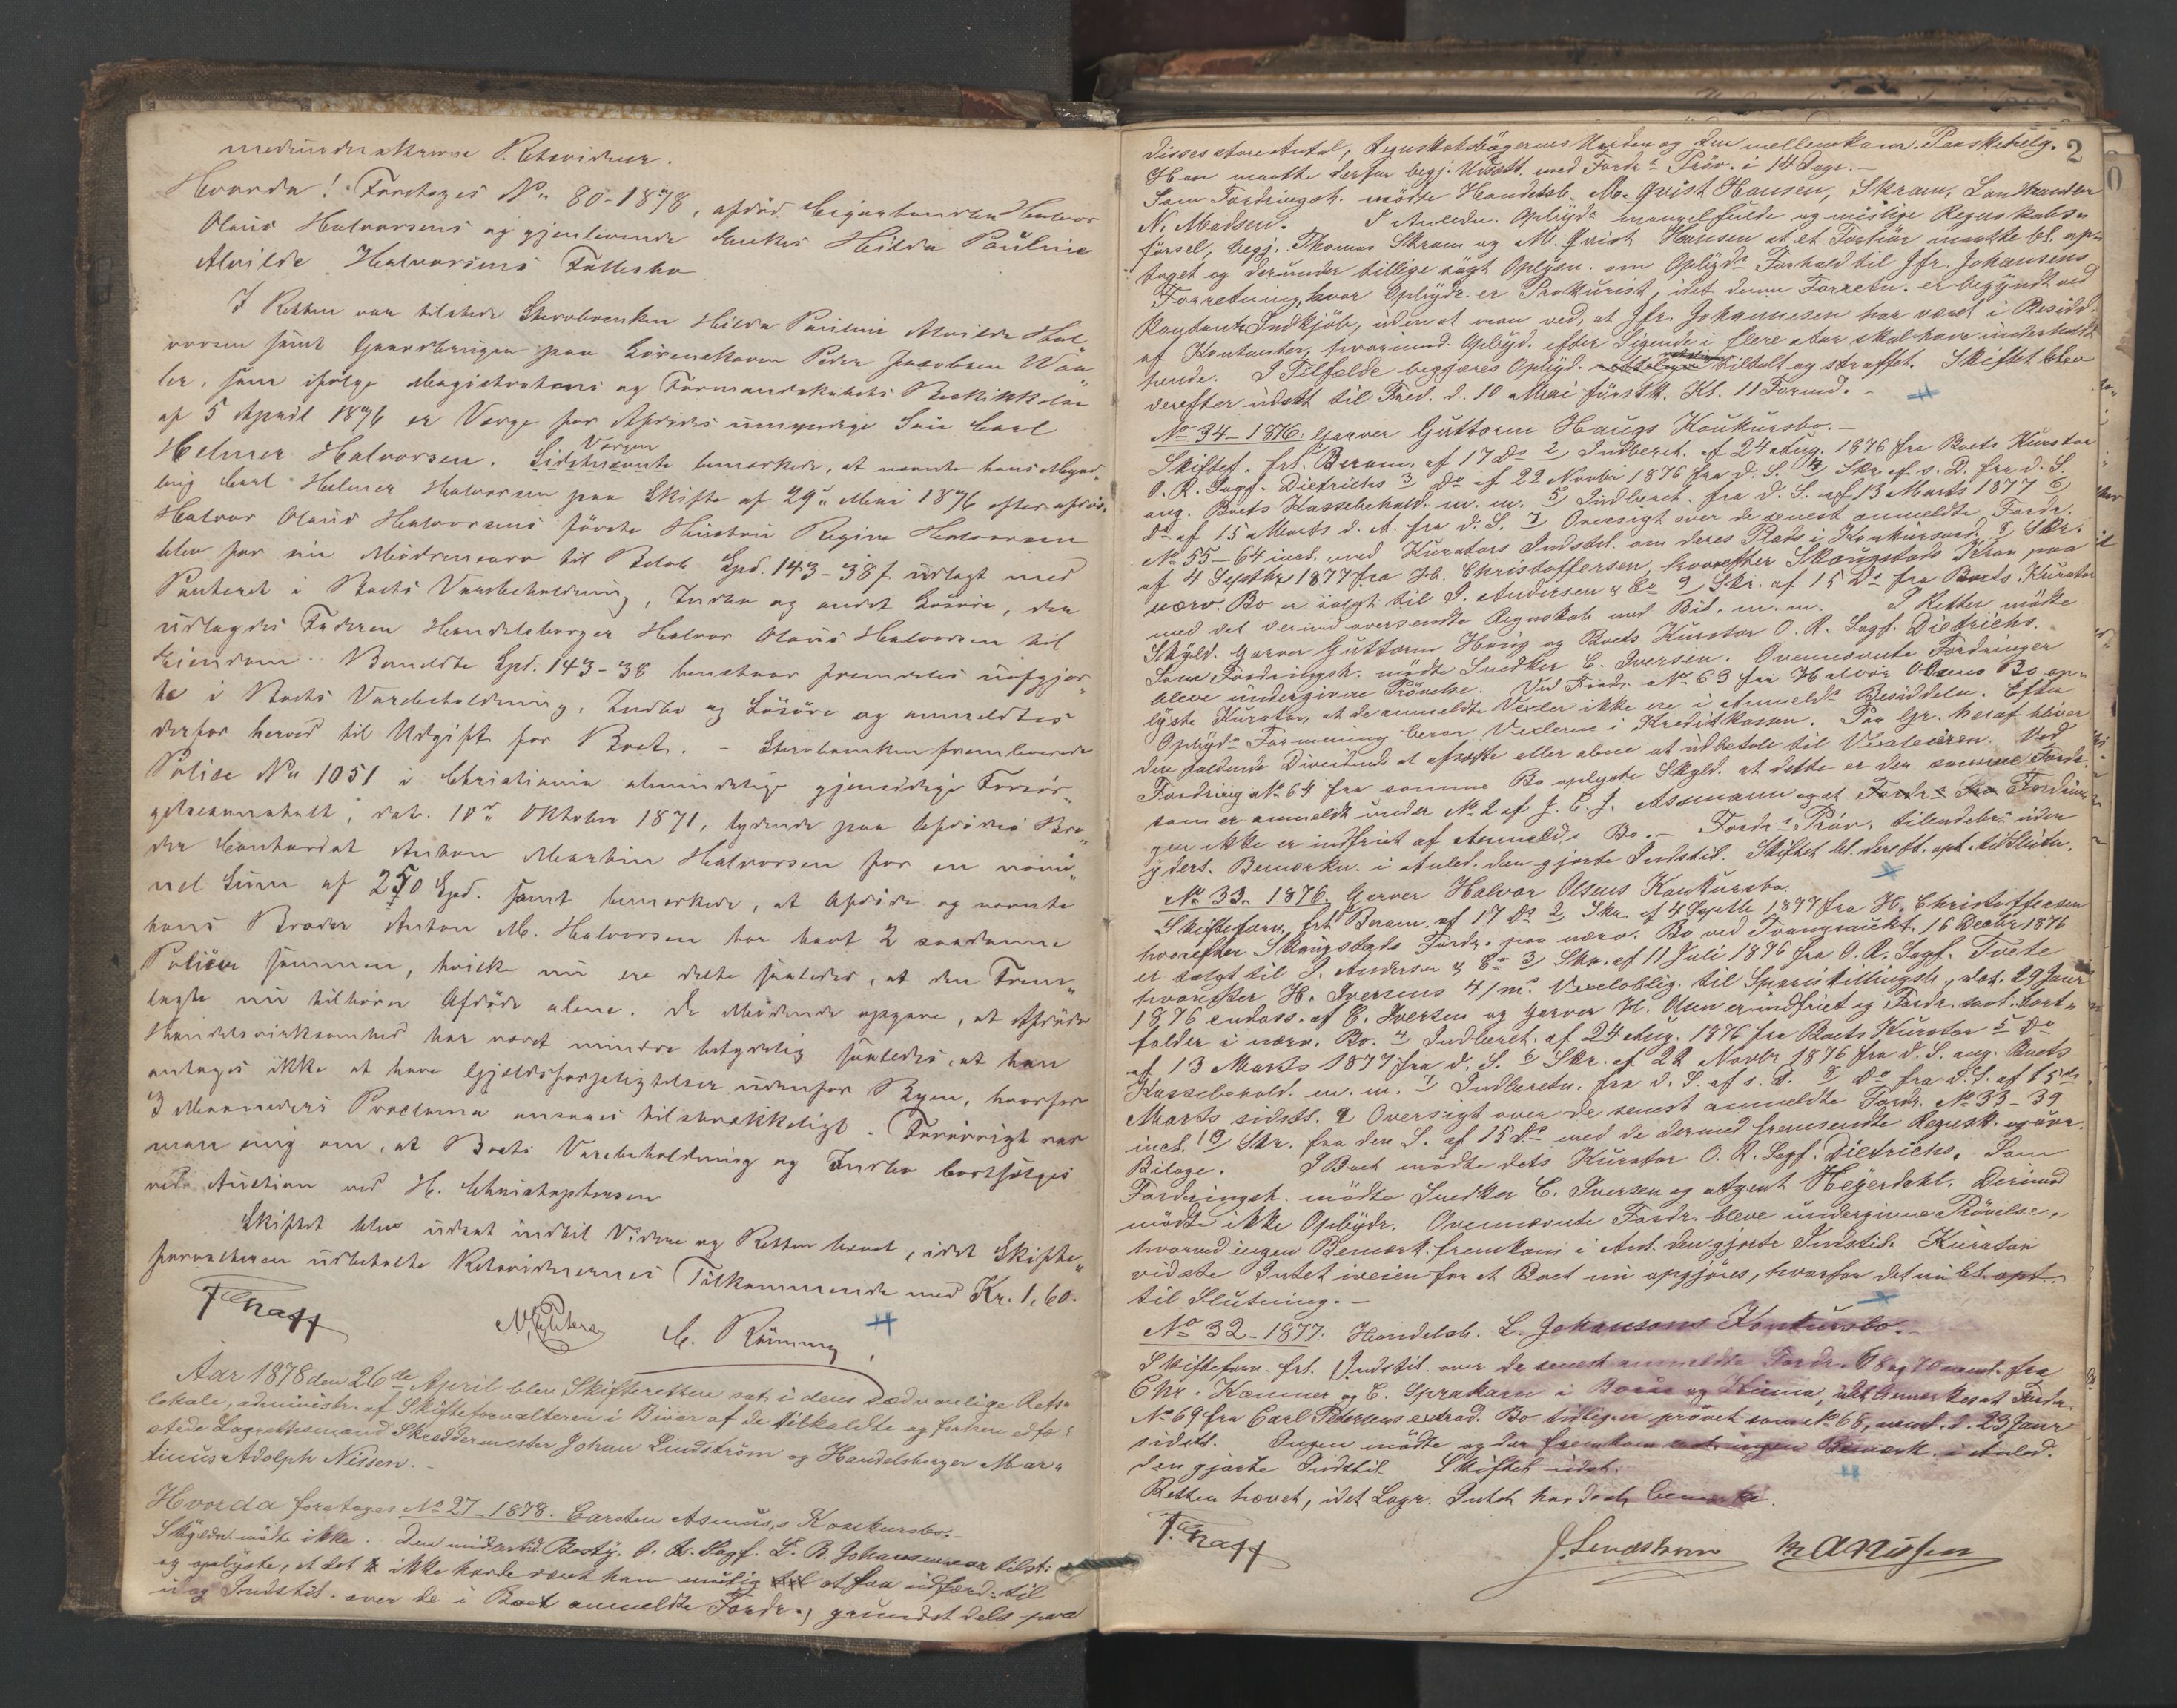 medunderskrevne Retsvidner.
Hvorda! Foretoges No 80-1878, afdød Cigarhandler Halvor
Olaus Halvorsens og gjenlevende Enkes Hilda Pauline
Alvilde Halvorsens Fællesbo.
I Retten var tilstede Stervboenken Hilda Pauline Alvilde Hal„
vorsen samt Gaardbruger paa Lørenskoven Peder Jacobsen Waa„
ler, som ifølge Magistratens og Formandskabets Beskikkelse
af 5 April 1876 er Værge for Afdødes umyndige Søn Carl
Helmer Halvorsen. Sidstnævnte Værgen bemærkede, at nævnte hans Mynd„
ling Carl Helmer Halvorsen paa Skifte af 29de Mai 1876 efter afdøde
Halvor Olaus Halvorsens første Hustru Regine Halvorsen
blev for sin Mødrenearv til Beløb Spd. 143-38 s udlagt med
Panteret i Boets Varebeholdning, Indbo og andet Løsøre, der
udlagdes Faderen Handelsborger Halvor Olaus Halvorsen til
Eiendom. Bemeldte Spd. 143-38 henstaar fremdeles uopgjor„
te i Boets Varebeholdning, Indbo og Løsøre og anmeldtes
derfor herved til Udgift for Boet. - Stervboenken fremleverede
Police No 1051 i Christiania almindelige gjensidige Forsør„
gelsesanstalt, dat. 10de Oktober 1871, lydende paa Afdødes Bro„
der Contordat Anton Martin Halvorsen for en nomi„
nel Sum af 250 Spd. samt bemærkede, at Afdøde og nævnte
hans Broder Anton M. Halvorsen har havt 2 saadanne
Policer sammen, hvilke nu ere delte saaledes, at den Frem„
lagte nu tilhører Afdøde alene. De Mødende opgave, at Afdødes
Handelsvirksomhed har været mindre betydelig saaledes, at han
antages ikke at have Gjældsforpligtelser udenfor Byen, hvorfor
3 Maaneders Proclama ansaaes tilstrækkeligt. Forøvrigt var
man enig om, at Boets Varebeholdning og Indbo bortsælges
ved Auction ved H. Christophersen
Skiftet blev udsat indtil Videre og Retten hævet, idet Skifte„
forvalteren udbetalte Retsvidnernes Tilkommende med Kr. 1,60.
C. Rønning
Aar 1878 den 26de April blev Skifteretten sat i dens sædvanlige Rets„
lokale, administr. af Skifteforvalteren i Bivær af de tilkaldte og forhen edfæ„
stede Lagrettesmænd Skræddermester Johan Lindström og Handelsborger Mar„
tinus Adolph Nissen.-
Hvorda foretoges No 27-1878. Carsten Asmus's Konkursbo.-
Skyldn. mødte ikke. Den midlertid. Besty. O. R. Sagf. L. B. Johannessen var tilst:
og oplyste, at det ikke havde været ham mulig at faa udfærd. til
idag Indstil. over de i Boet anmeldte Fordr., grundet dels paa
2
disses store Antal, Regnskabsbøgernes Uorden og den mellemkom. Paaskehelg.
Han maatte derfor begj. Udsætt. med Fordrs Prøv. i 14 Dage.-
Som Fordringsh. mødte Handelsb. M. Qvist Hansen, Skram, Landhandler
N. Madsen. I Anledn. Opbyds mangelfulde og mislige Regnskabs„
førsel, begj. Thomas Skram og M. Qvist Hansen at et Forhør maatte bl. op„
taget og derunder tillige søgt Oplysn. om Opbyds Forhold til Jfr. Johansens
Forretning, hvor Opbydr. er Prokurist, idet denne Forretn. er begyndt ved
kontante Indkjøb, uden at man ved, at Jfr. Johannesen har været i Besidd.
af Kontanter, hvorimod Opbyd. efter Sigende i flere Aar skal have underholdt
hende. I Tilfælde begjæres Opbyd. tiltalt og straffet. Skiftet blev
derefter udsat til Fred. d. 10 Mai førstk. Kl. 11 Formd.-
No 34-1876. Garver Guttorm Haugs Konkursbo.-
Skiftef. frl. Beram. af 17 Ds 2 Indberet. af 24 Aug. 1876 fra Boets Kurator
O. R. Sagf. Dietrichs 3 Do af 22 Novbr 1876 fra d. S. 4 Skr. af s. D. fra d. S.
ang. Boets Kassebehold. m. m. 5 Indberet. fra d. S. af 13 Marts 1877 6
Do af 15 Marts d. A. fra d. S. 7 Oversigt over de senest anmeldte Fordr.
No 55-64 incl. med Kurators Indstil. om deres Plads i Konkursord. 8 Skr.
af 4 Septbr 1877 fra H. Christoffersen, hvorefter Skougstads Krav paa
nærv. Bo er solgt til S. Andersen & Co 9 Skr. af 15 Ds fra Boets Kurator
med det dermed oversendte Regnskab med Bil. m. m. I Retten mødte
Skyld. Garver Guttorm Haug og Boets Kurator O. R. Sagf. Dietrichs.
Som Fordringsh. mødte Snedker C. Iversen. Ovennævnte Fordringer
bleve undergivne Prøvelse. Ved Fordr. No 63 fra Halvor Olsens Bo op„
lyste Kurator, at de anmeldte Vexler ikke ere i Anmeldts Besiddelse. Efter
Opbyds Formening beror Vexlerne i Kreditkassen. Paa Gr. heraf bliver
den faldende Dividende at afsætte eller alene at udbetale til Vexeleieren. Ved
Fordring No 64 fra samme Bo oplyste Skyld. at dette er den samme Fordr.
som er anmeldt under No 2 af J. C. J. Assmann og at Fordrin„
gen ikke er indfriet af Anmeld. Bo.- Fordrs Prøv. tilendebr. uden
yderl. Bemærkn. i Anled. den gjorte Indstil. Skiftet bl. dereft. opt. til Slutn.
No 33-1876. Garver Halvor Olsens Konkursbo.
Skifteforv. frl. Beram. af 17 Ds 2 Skr. af 4 Septbr 1877 fra H. Christoffersen
hvorefter Skougstads Fordr. paa nærv. Bo ved Tvangsaukt. 16 Decbr 1876
er solgt til S. Andersen & Co 3 Skr. af 11 Juli 1876 fra O. R. Sagf. Tvete
hvorefter H. Iversens 4/m. Vexeloblig. til dat. 29 Janr
1876 endoss. af C. Iversen og Garver H. Olsen er indfriet og Fordr. saal. bort„
falder i nærv. Bo. 4 Indberet. af 24 Aug. 1876 fra Boets Kurator 5 Do
af 13 Marts 1877 fra d. S. 6 Skr. af 22 Novbr 1876 fra d. S. ang. Boets
Kassebehold. m. m. 7 Indberetn. fra d. S. af s. D. 8 Do fra d. S. af 15de
Marts sidstl. 9 Oversigt over de senest anmeldte Fordr. No 33-39
incl. 10 Skr. fra den S. af 15 Ds med de dermed fremsendte Regnsk. og øvr.
Bilage. I Boet mødte dets Kurator O. R. Sagf. Dietrichs. Som
Fordringsh. mødte Snedker C. Iversen og Agent Heyerdahl. Derimod
mødte ikke Opbydr. Ovennævnte Fordr. bleve undergivne Prøvelse,
hvorved ingen Bemærk. fremkom i Anl. den gjorte Indstil. Kurator
vidste Intet iveien for at Boet nu opgjøres, hvorfor det nu bl. opt.
til Slutning.-
No 32-1877. Handelsb. L. Johansons Konkursbo.-
Skifteforv. frl. Indstil. over de senest anmeldte Fordr. 68 og 70 fra
Chr. Kæmner og C. Sprakarn i Borås og Kinna, idet bemærkes at Fordr.
No 69 fra Carl Petersens extrad. Bo tidligere prøvet som No 68, d. 23 Janr
sidstl. Ingen mødte og der fremkom ingen Bemærk. i Anled.
den gjorte Indstil. Skiftet udsat.
Retten hævet, idet Lagr. Intet havde at bemærke.
J. Lindström M A Nissen